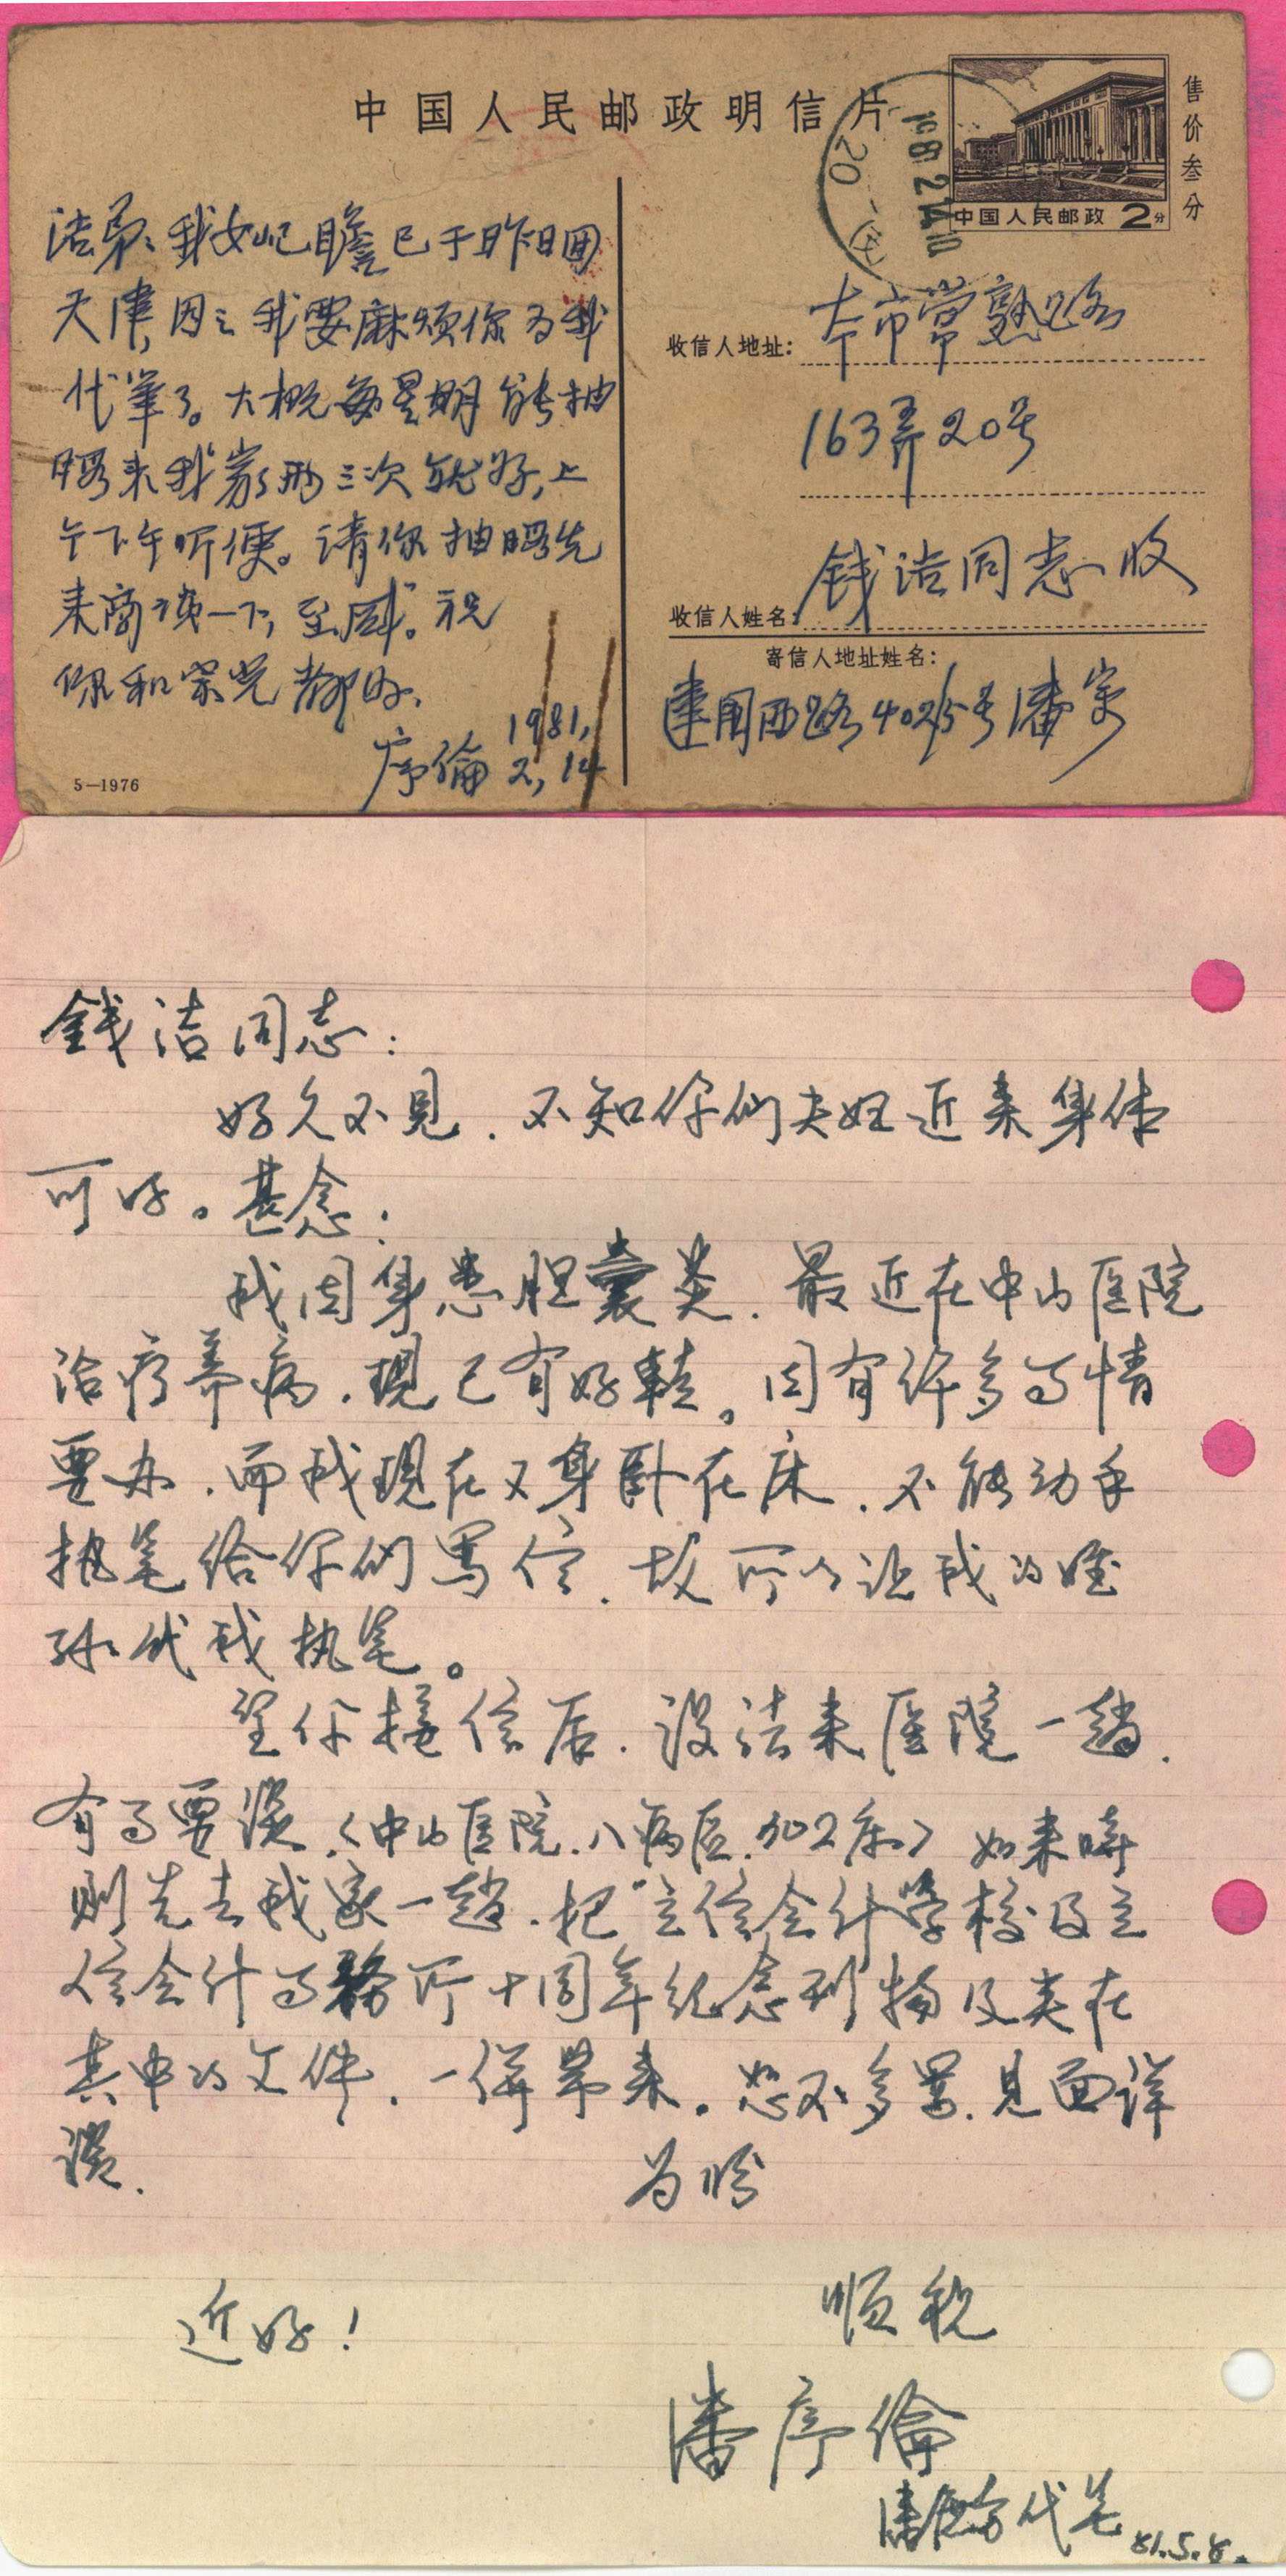 中国人民邮政明信片
售价叁分
中国人民邮政 2分
20
洁弟：我女屺瞻已于昨日回
天津，因之我要麻烦你为我
代笔了。大概每星期能抽
暇来我家两三次就好，上
午下午听便。请你抽暇先
来商谈一下，至感。祝
你和宗光都好。
序倫 1981，
2，14
5—1976
收信人地址：本市常熟路
163弄20号
收信人姓名：钱洁同志收
寄信人地址姓名：
建国西路402/5号潘寄
錢洁同志：
好久不見．不知你们夫妇近来身体
可好。甚念：
我因身患胆囊炎．最近在中山医院
治疗养病．現已有好転。因有许多事情
要办．而我現在又身卧在床．不能动手
执笔给你们写信．故所以让我的姪
孙代我执笔。
望你接信后．設法来医院一趟．
有事要談．〈中山医院．八病区．加2床〉如来時
则先去我家一趟．把“立信会计学校及立
信会计事務所十周年纪念刊物及夹在
其中的文件．一併带来。恕不多写．見面详
談．
为盼
順祝
近好！
潘序倫
代笔
81.5.8.